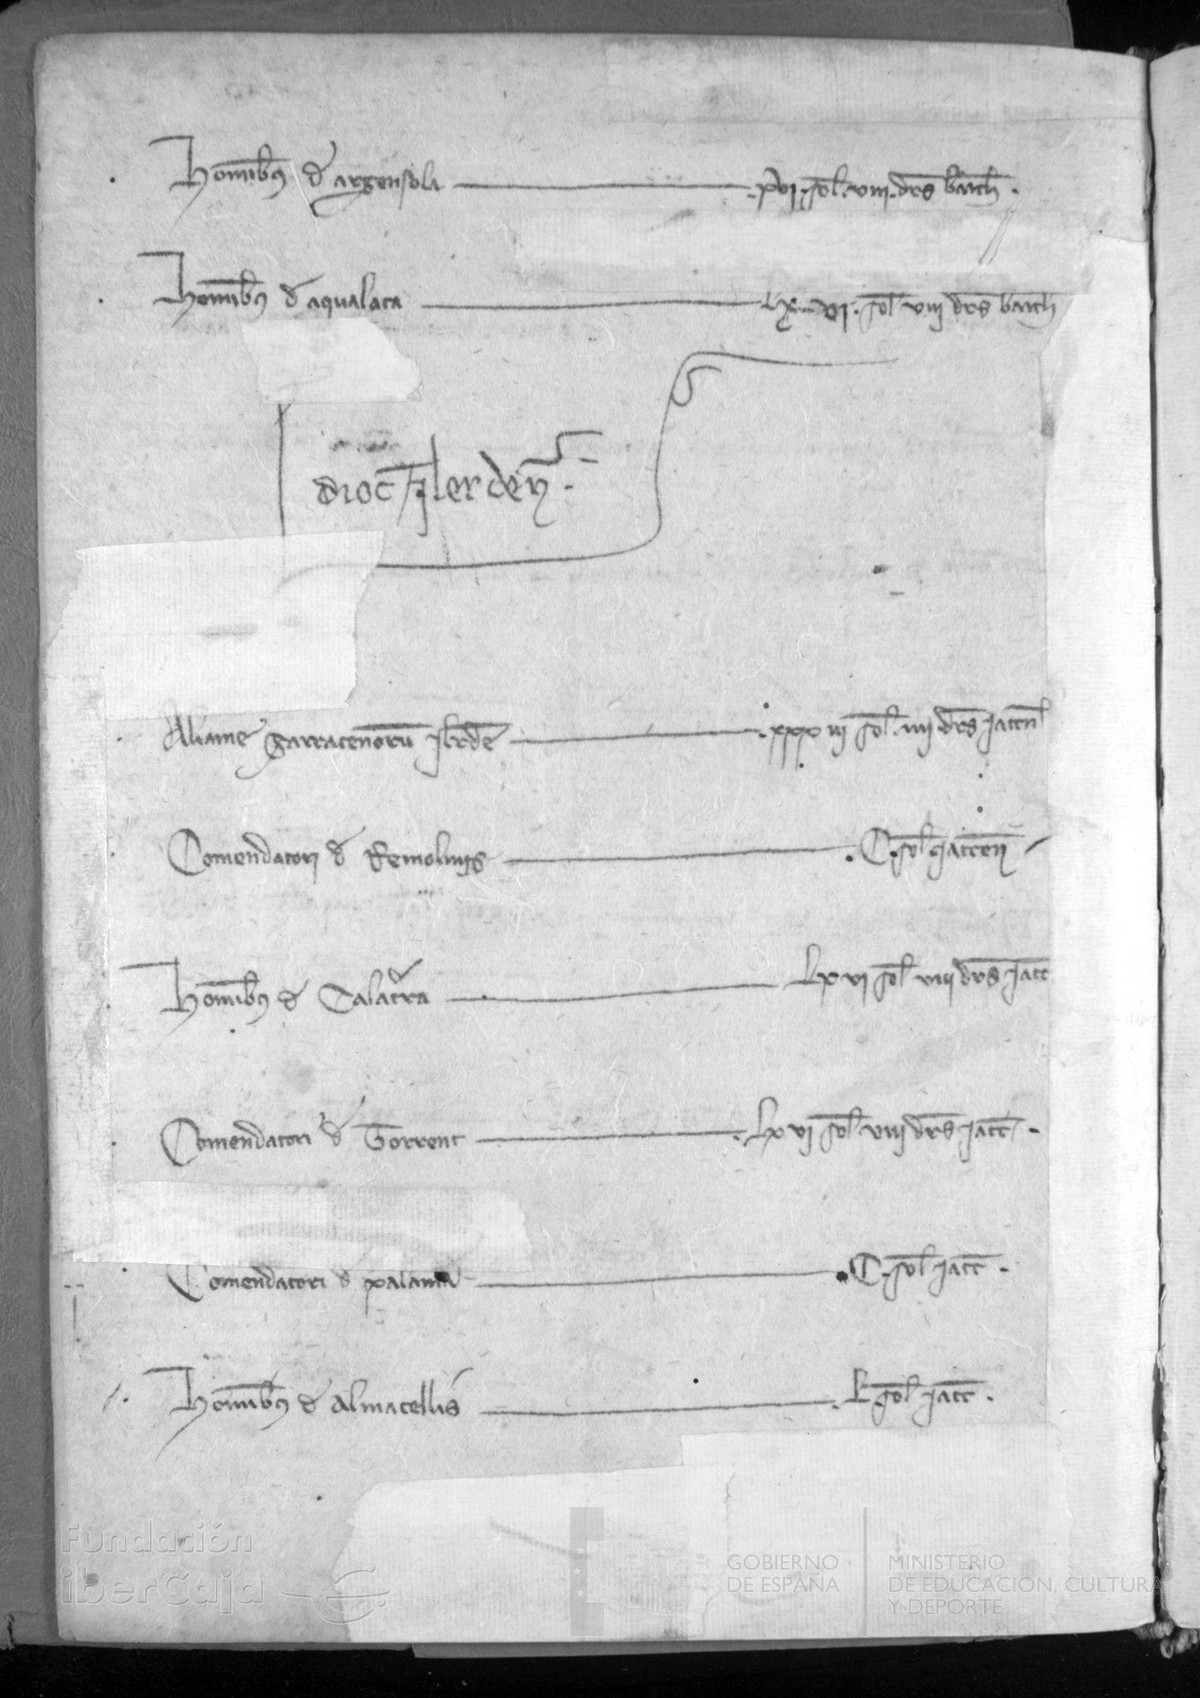 Homībꝯ d' argensola ——— .xvi. sol. viii. drs barch .
Homībꝯ d' aqualata ——— Lxvi. sol viij drs barch
dioc̄ Jlerdeñ .
Aliame sarracenorū Jlrde ——— .xxxiij sol. iiij drs jaccñ
Comendatori d' Remolinis ——— . C. sol jacceñ
Homībꝯ d' Calatr̄a ——— Lxvi sol viij drs jacc̄
Comendatori d' Torrent ——— .Lxvj sol viij drs jacc̄ .
Comendatori d' ——— . C. sol jacc̄ .
Homībꝯ d' Almacellis ——— . L sol jacc̄ .
Fundación
iberCaja
GOBIERNO
DE ESPAÑA
MINISTERIO
DE EDUCACIÓN, CULTURA
Y DEPORTE